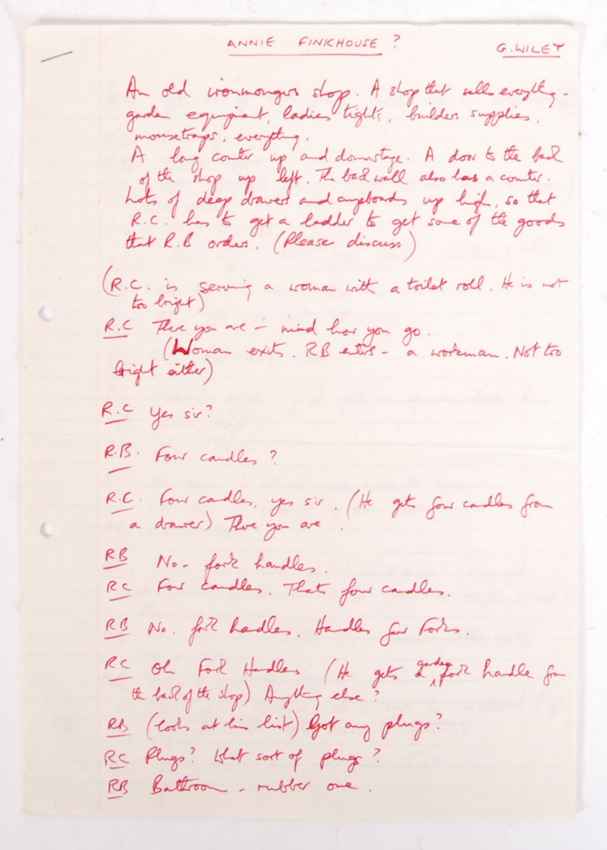 ANNIE FINKHOUSE ?
G. WILEY
An old ironmongers shop. A shop that sells everything -
garden equipment, ladies tights, builders supplies,
mousetraps, everything.
A long counter up and downstage. A door to the back
of the shop up left. The back wall also has a counter.
Lots of deep drawers and cupboards up high, so that
R.C. has to get a ladder to get some of the goods
that R.B orders. (Please discuss)
(R.C. is serving a woman with a toilet roll. He is not
too bright)
R.C There you are - mind how you go.
(Woman exits. RB enters - a workman. Not too
bright either)
R.C Yes sir?
R.B. Four candles ?
R.C. Four candles, yes sir. (He gets four candles from
a drawer) There you are.
RB No - fork handles.
RC Four candles. Thats four candles.
RB No. fork handles. Handles for Forks.
RC Oh Fork Handles (He gets a garden fork handle from
the back of the shop) Anything else?
RB (looks at his list) Got any plugs?
RC Plugs? What sort of plugs?
RB Bathroom - rubber one.